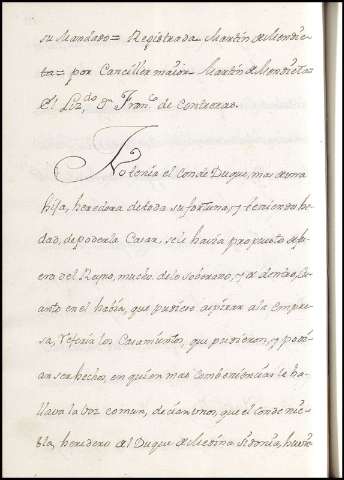 su Mandado= Registrada Martin de Mendie-
ta= por Canciller maior Martin de Mendieta=
El Liz.do D.n Fran.co de Contreras.
No tenia el Conde Duque, mas de una
hija, heredera de toda su fortuna, y teniendo he-
dad, de poderla Casar, se le havia propuesto de fu-
era del Reyno, mucho de lo soberano, y de dentro, Qu-
anto en el había, que pudiese aspirar a la Empre-
sa, referia los Casamientos, que pudieron, y podri-
an ser hechos, en quien mas combeniencias le ha-
llava la voz comun, decian unos, que el Conde Nie-
bla, heredero del Duque de Medina Sidonia, huvie